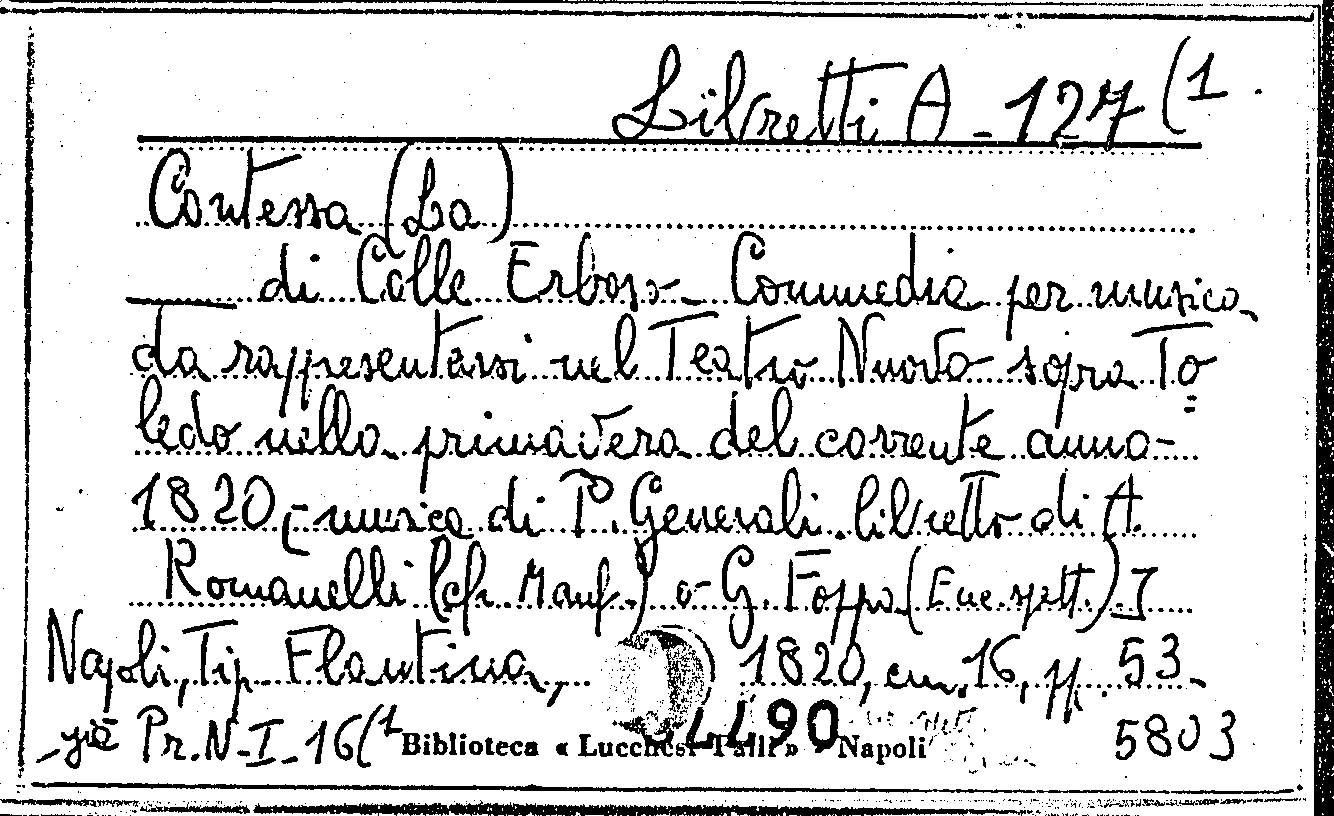 Libretti A - 127 (1.
Contessa (La)
____ di Colle Erboso - Commedia per musica
da rappresentarsi nel Teatro Nuovo sopra To=
ledo nella primavera del corrente anno -
1820, [musica di P. Generali. libretto di A.
Romanelli (cfr. Manf.) o G. Foppa (Enc. spett.)]
Napoli, Tip. Flautina, 1820, cm. 16, pp. 53 -
- già Pr. N - I - 16 (1 5803
Biblioteca « Lucchesi-Palli » - Napoli